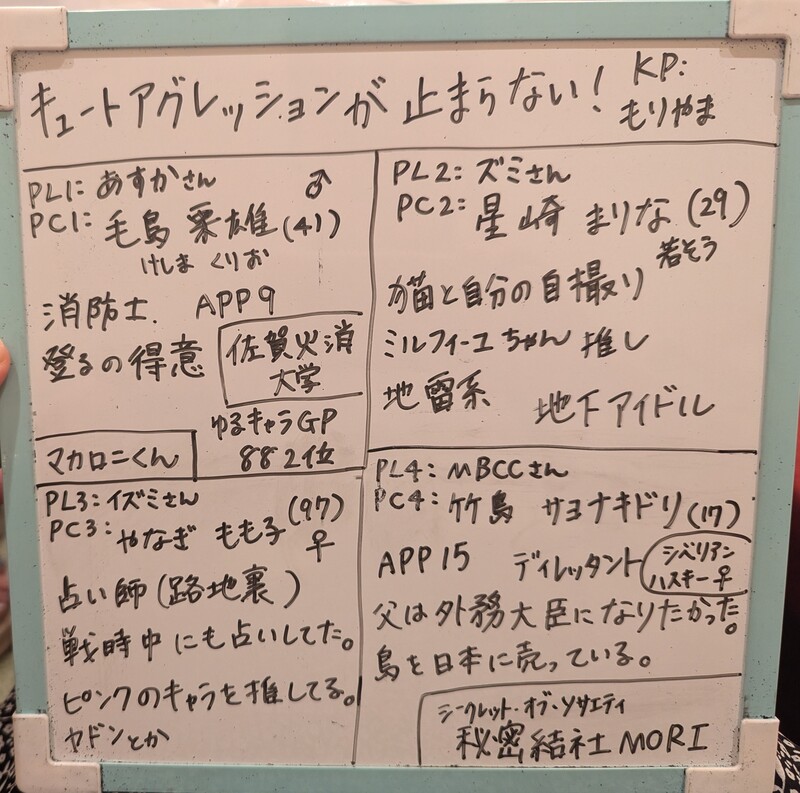 キュートアグレッションが止まらない!
KP:
もりやま
PL1: あすかさん ♂
PC1: 毛島 栗雄(41)
けしま くりお
消防士. APP9
登るの得意
佐賀火消
大学
ゆるキャラGP
882位
マカロニくん
PL2: ズミさん
PC2: 星崎 まりな(29)
若そう
猫と自分の自撮り
ミルフィーユちゃん 推し
地雷系 地下アイドル
PL3: イズミさん
PC3: やなぎ もも子(97)
♀
占い師(路地裏)
戦時中にも占いしてた。
ピンクのキャラを推してる。
ヤドンとか
PL4: MBCCさん
PC4: 竹島 サヨナキドリ(17)
APP15 ディレッタント
シベリアン
ハスキー♀
父は外務大臣になりたかった。
島を日本に売っている。
シークレット・オブ・ソサエティ
秘密結社MORI